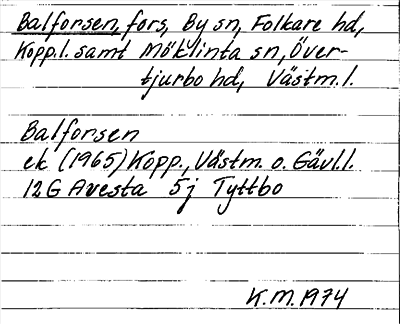 Balforsen, fors, By sn, Folkare hd,
Kopp.l. samt Möklinta sn, Över-
tjurbo hd, Västm.l.
Balforsen
ek (1965) Kopp., Västm. o. Gävl.l.
12G Avesta 5j Tyttbo
K.M. 1974